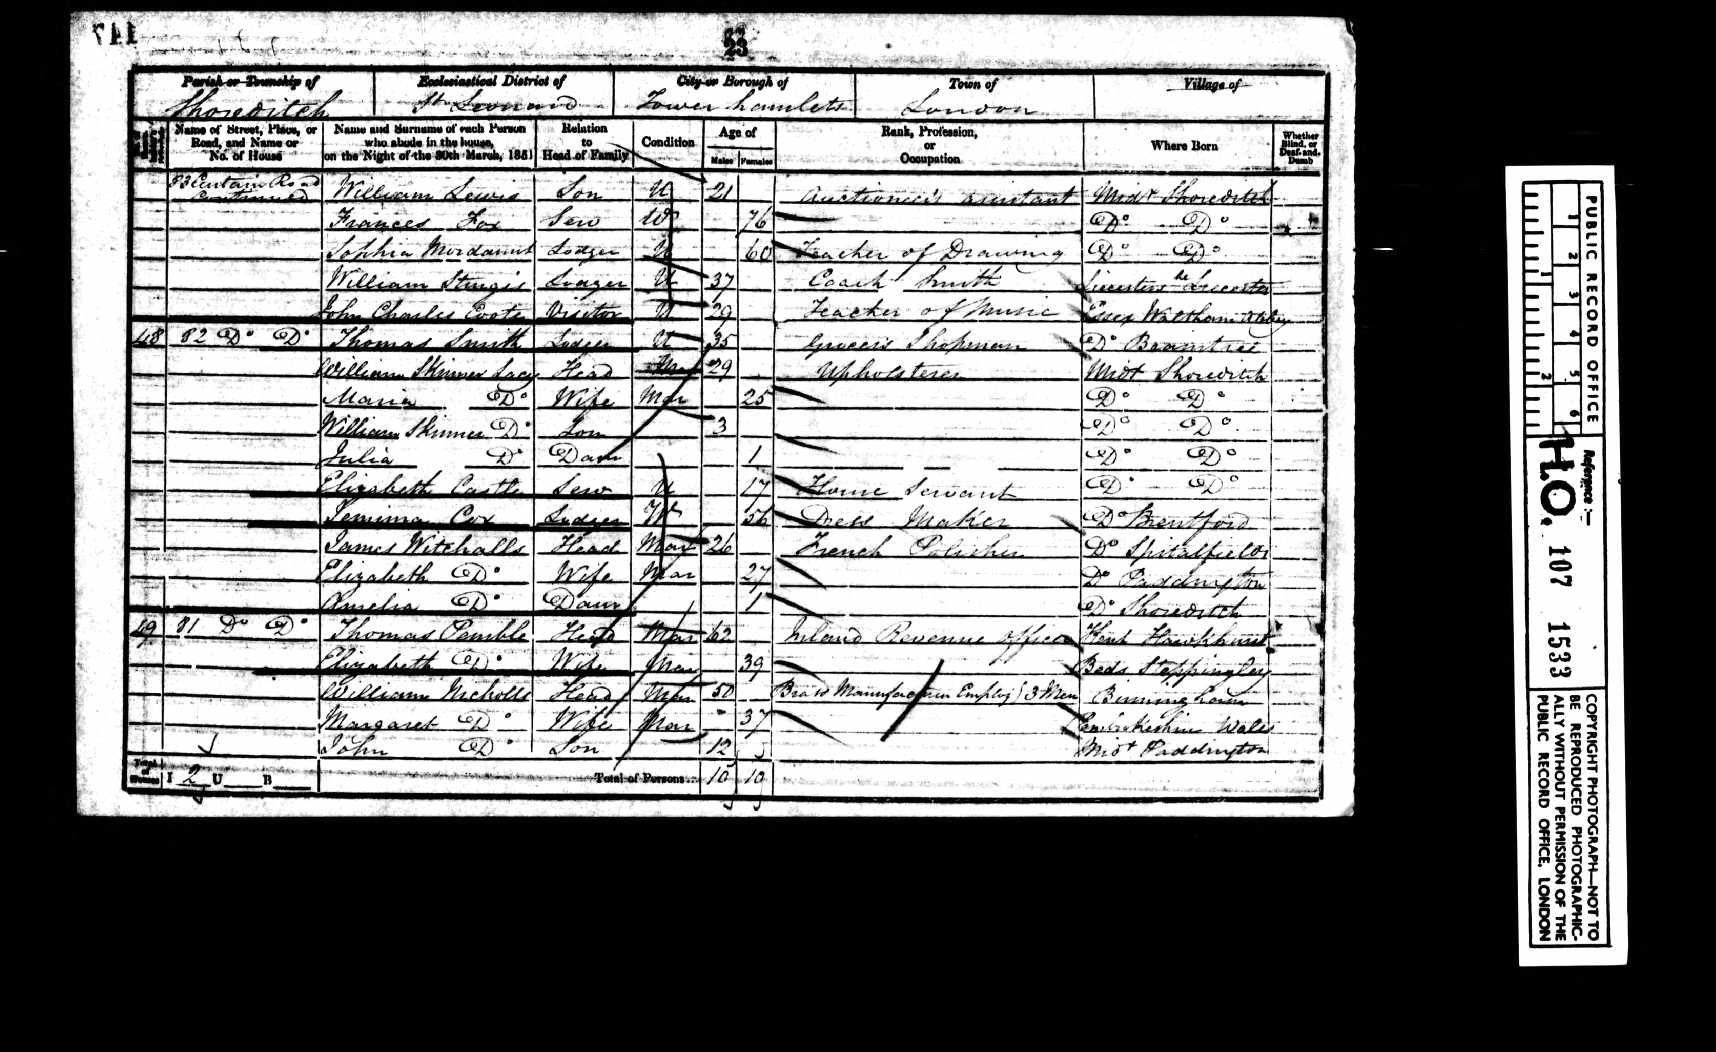 117
23
23
Parish or Township of Ecclesiastical District of City or Borough of Town of Village of
Shoreditch St Leonard Tower hamlets London
Name of Street, Place, or Road, and Name or No. of House
Name and Surname of each Person who abode in the house, on the Night of the 30th March, 1851
Relation to Head of Family
Condition
Age of
Males Females
Rank, Profession, or Occupation
Where Born
Whether Blind, or Deaf-and-Dumb
83 Curtain Road continued William Lewis Son U 21 Auctioneer's assistant Midx Shoreditch
Frances Fox Serv W 76 Do Do
Sophia Mordaunt Lodger U 60 Teacher of Drawing Do Do
William Sturgis Lodger U 37 Coach Smith Leicestershe Leicester
John Charles Visitor U 29 Teacher of Music Essex Waltham Abbey
48 82 Do Do Thomas Smith Lodger U 35 Grocers Shopman Do Braintree
William Skinner Lacy Head Mar 29 Upholsterer Midx Shoreditch
Maria Do Wife Mar 25 Do Do
William Skinner Do Son 3 Do Do
Julia Do Daur 1 Do Do
Elizabeth Castle Serv U 17 House Servant Do Do
Jemima Cox Lodger W 56 Dress Maker Do Brentford
James Witchalls Head Mar 26 French Polisher Do Spitalfields
Elizabeth Do Wife Mar 27 Do Paddington
Amelia Do Daur 1 Do Shoreditch
49 81 Do Do Thomas Pemble Head Mar 62 Inland Revenue officer Kent Hawkhurst
Elizabeth Do Wife Mar 39 Beds Steppingley
William Nicholls Head Mar 50 Brass Manufacturer Employg 3 Men Birmingham
Margaret Do Wife Mar 37 Wales
John Do Son 12 Midx Paddington
Total of Houses I 2 U B Total of Persons 10 10
PUBLIC RECORD OFFICE
1 2 3 4 5 6
1 2
Reference :-
H.O. 107 1533
COPYRIGHT PHOTOGRAPH—NOT TO
BE REPRODUCED PHOTOGRAPHIC-
ALLY WITHOUT PERMISSION OF THE
PUBLIC RECORD OFFICE, LONDON